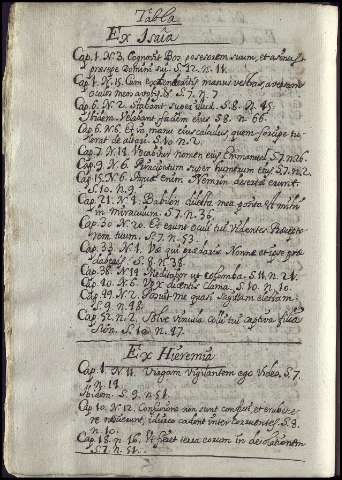 Tabla
Ex Isaia
Cap. 1. N. 3. Cognovit Bos possesorem suum, et asinus
præsepe Domini sui. S. 12. n. 14.
Cap. 1. N. 15. Cum extenderitis manus vestras, avertam
oculos meos a vobis. S. 7. n. 7
Cap. 6. N. 2. Stabant super illud. S. 8. n. 45.
Ibidem. Velabant faciem eius S. 8. n. 66.
Cap. 6. N. 6. Et in manu eius calculus quem forcipe tu-
lerat de altari. S. 10. n. 2.
Cap. 7. N. 14. Vocabitur nomen eius Emmanuel. S. 7. n. 26.
Cap. 9. N. 6. Principatum super humerum eius. S. 7. n. 2.
Cap. 15. N. 6. Aquæ enim Nemrim deserta erunt.
S. 10. n. 9.
Cap. 21. N. 4. Babilon dilecta mea posita est mihi
in miraculum. S. 7. n. 36.
Cap. 30. N. 20. Et erunt oculi tui videntes Præcepto-
rem tuum. S. 7. n. 53.
Cap. 33. N. 1. Væ qui prædaris Nonne et ipse præ-
daberis. S. 8. n. 38.
Cap. 38. N. 14. Meditabor ut columba. S. 11. n. 21.
Cap. 40. N. 6. Vox dicentis clama. S. 10. n. 10.
Cap. 49. N. 2. Posuit me quasi sagittam electam.
S. 9. n. 48.
Cap. 52. n. 2. Solve vincula colli tui captiva filia
Sion. S. 10. n. 47.
Ex Hieremia
Cap. 1. N. 11. Virgam vigilantem ego video. S. 7.
n. 14.
Ibidem. S. 9. n. 51.
Cap. 10. N. 12. Confusione non sunt confusi, et erubesce-
re nescierunt, idcirco cadent inter corruentes. S. 3.
n. 10.
Cap. 18. n. 16. Ut fieret terra eorum in desolationem
S. 7. n. 51.